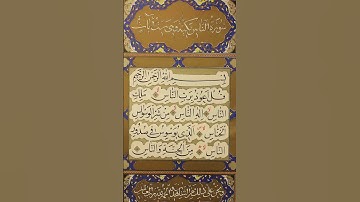 سورة الناس مكية وهي ست آيات
بسم الله الرحمن الرحيم
قل أعوذ برب الناس ملك
الناس إله الناس من شر الوسواس
الخناس الذي يوسوس في صدور
الناس من الجنة والناس